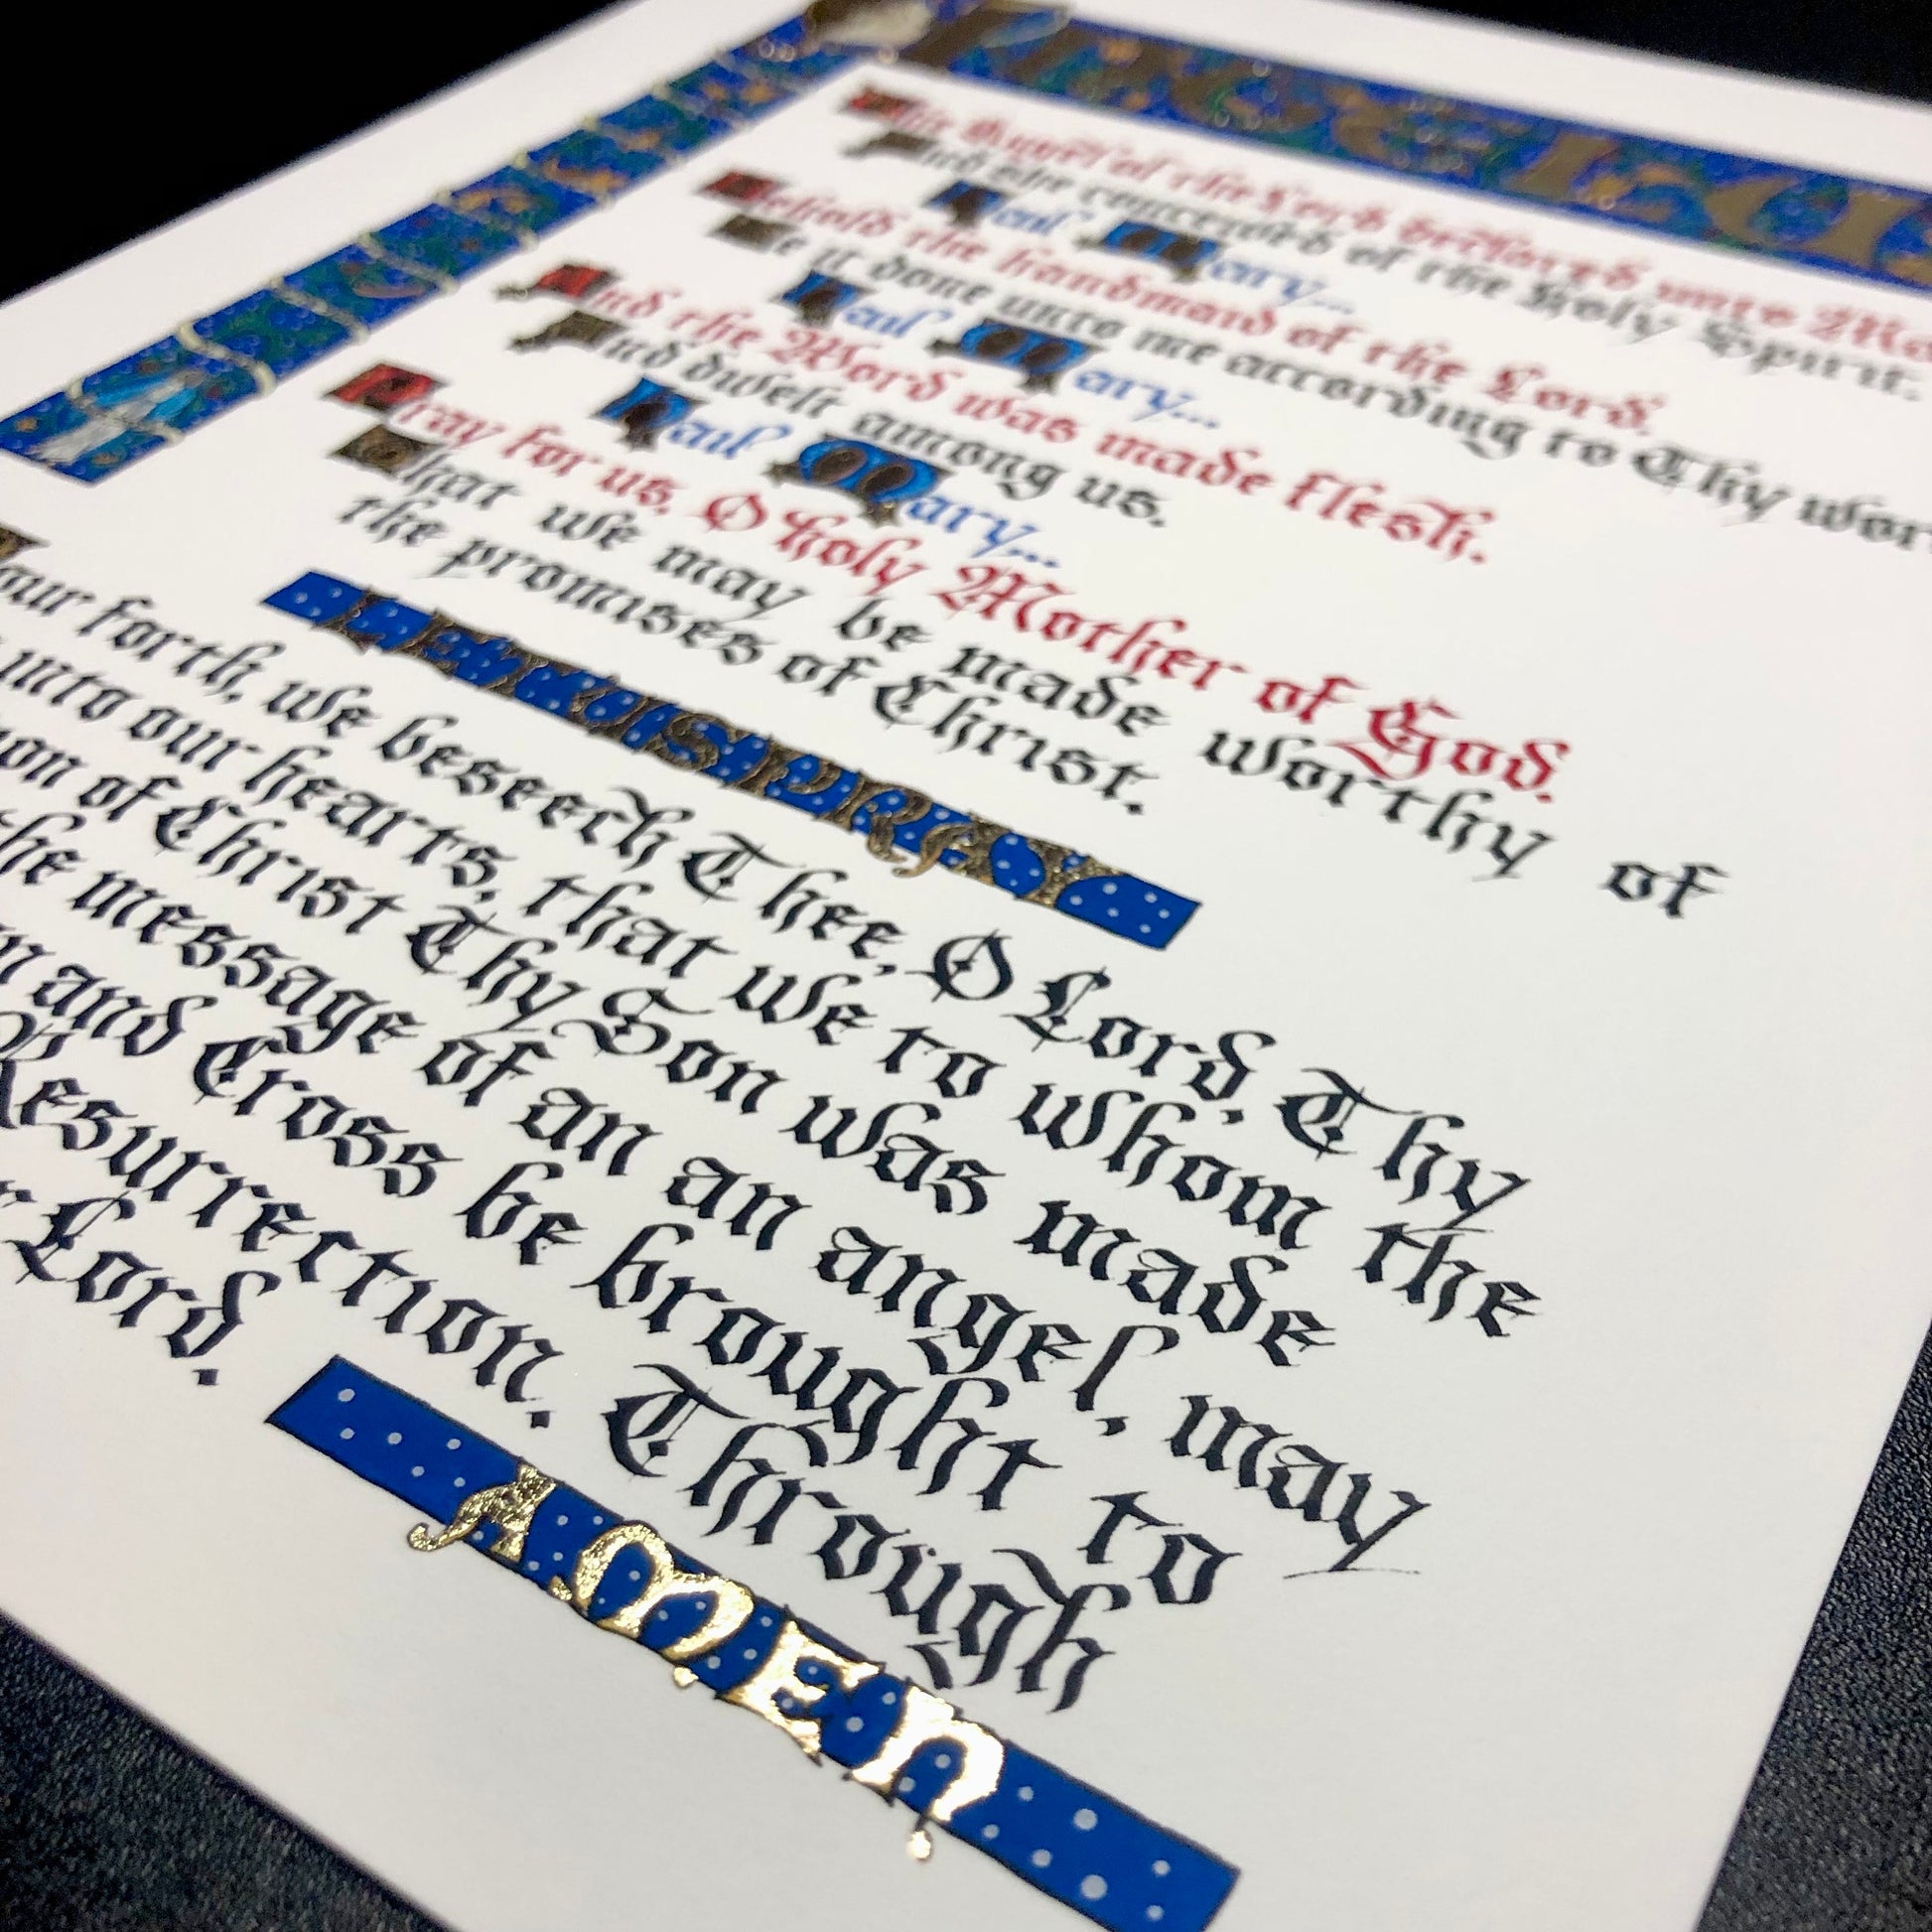 The Angel
The Angel of the Lord declared unto Ma
And she conceived of the Holy Spirit.
Hail Mary...
Behold the handmaid of the Lord.
Be it done unto me according to Thy wor
Hail Mary...
And the Word was made flesh.
And dwelt among us.
Hail Mary...
Pray for us, O holy Mother of God.
That we may be made worthy of
the promises of Christ.
LET US PRAY
Pour forth, we beseech Thee, O Lord, Thy
into our hearts, that we to whom the
ion of Christ Thy Son was made
the message of an angel, may
n and Cross be brought to
Resurrection. Through
r Lord.
AMEN